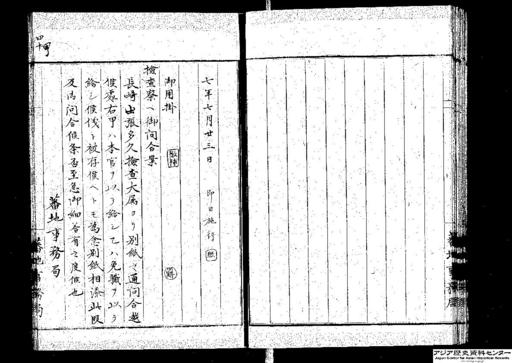 七年七月廿三日 即日施行
御用掛
檢査寮へ御問合案
長崎出張多久檢査大属ヨリ別紙之通問合越
候處右甲ハ本官ヲ以テ給シ乙ハ免職ヲ以テ
給シ候儀ト被存候ヘトモ為念別紙相添此段
及御問合候条否至急御回答有之度候也
蕃地事務局
蕃地事務局
アジア歴史資料センター
Japan Center for Asian Historical Records